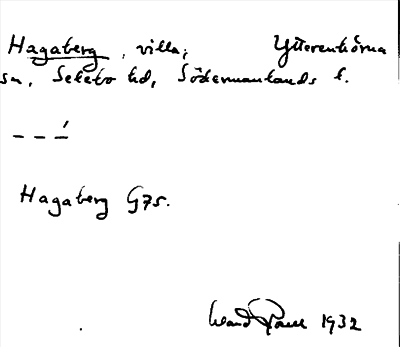 Hagaberg, villa, Ytterenhörna
sn, Selebo hd, Södermanlands l.
– – –́
Hagaberg G75.
1932